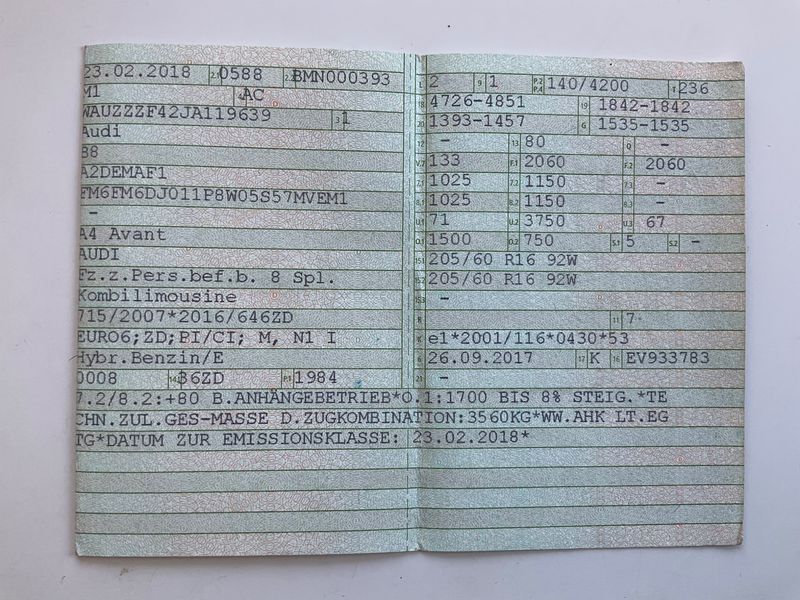 23.02.2018 0588 BMN000393
M1 AC
WAUZZZF42JA119639 3 1
Audi
B8
A2DEMAF1
FM6FM6DJ011P8W05S57MVEM1
-
A4 Avant
AUDI
Fz.z.Pers.bef.b. 8 Spl.
Kombilimousine
715/2007*2016/646ZD
EURO6;ZD;PI/CI; M, N1 I
Hybr.Benzin/E
0008 36ZD P.1 1984
L 2 9 1 P.2 P.4 140/4200 T 236
18 4726-4851 19 1842-1842
20 1393-1457 G 1535-1535
12 - 13 80 Q -
V.7 133 F.1 2060 F.2 2060
7.1 1025 7.2 1150 7.3 -
8.1 1025 8.2 1150 8.3 -
U.1 71 U.2 3750 U.3 67
O.1 1500 O.2 750 S.1 5 S.2 -
15.1 205/60 R16 92W
15.2 205/60 R16 92W
15.3 -
R 11 7
K e1*2001/116*0430*53
6 26.09.2017 17 K 16 EV933783
21 -
7.2/8.2:+80 B.ANHÄNGEBETRIEB*O.1:1700 BIS 8% STEIG.*TE
CHN.ZUL.GES-MASSE D.ZUGKOMBINATION:3560KG*WW.AHK LT.EG
TG*DATUM ZUR EMISSIONSKLASSE: 23.02.2018*